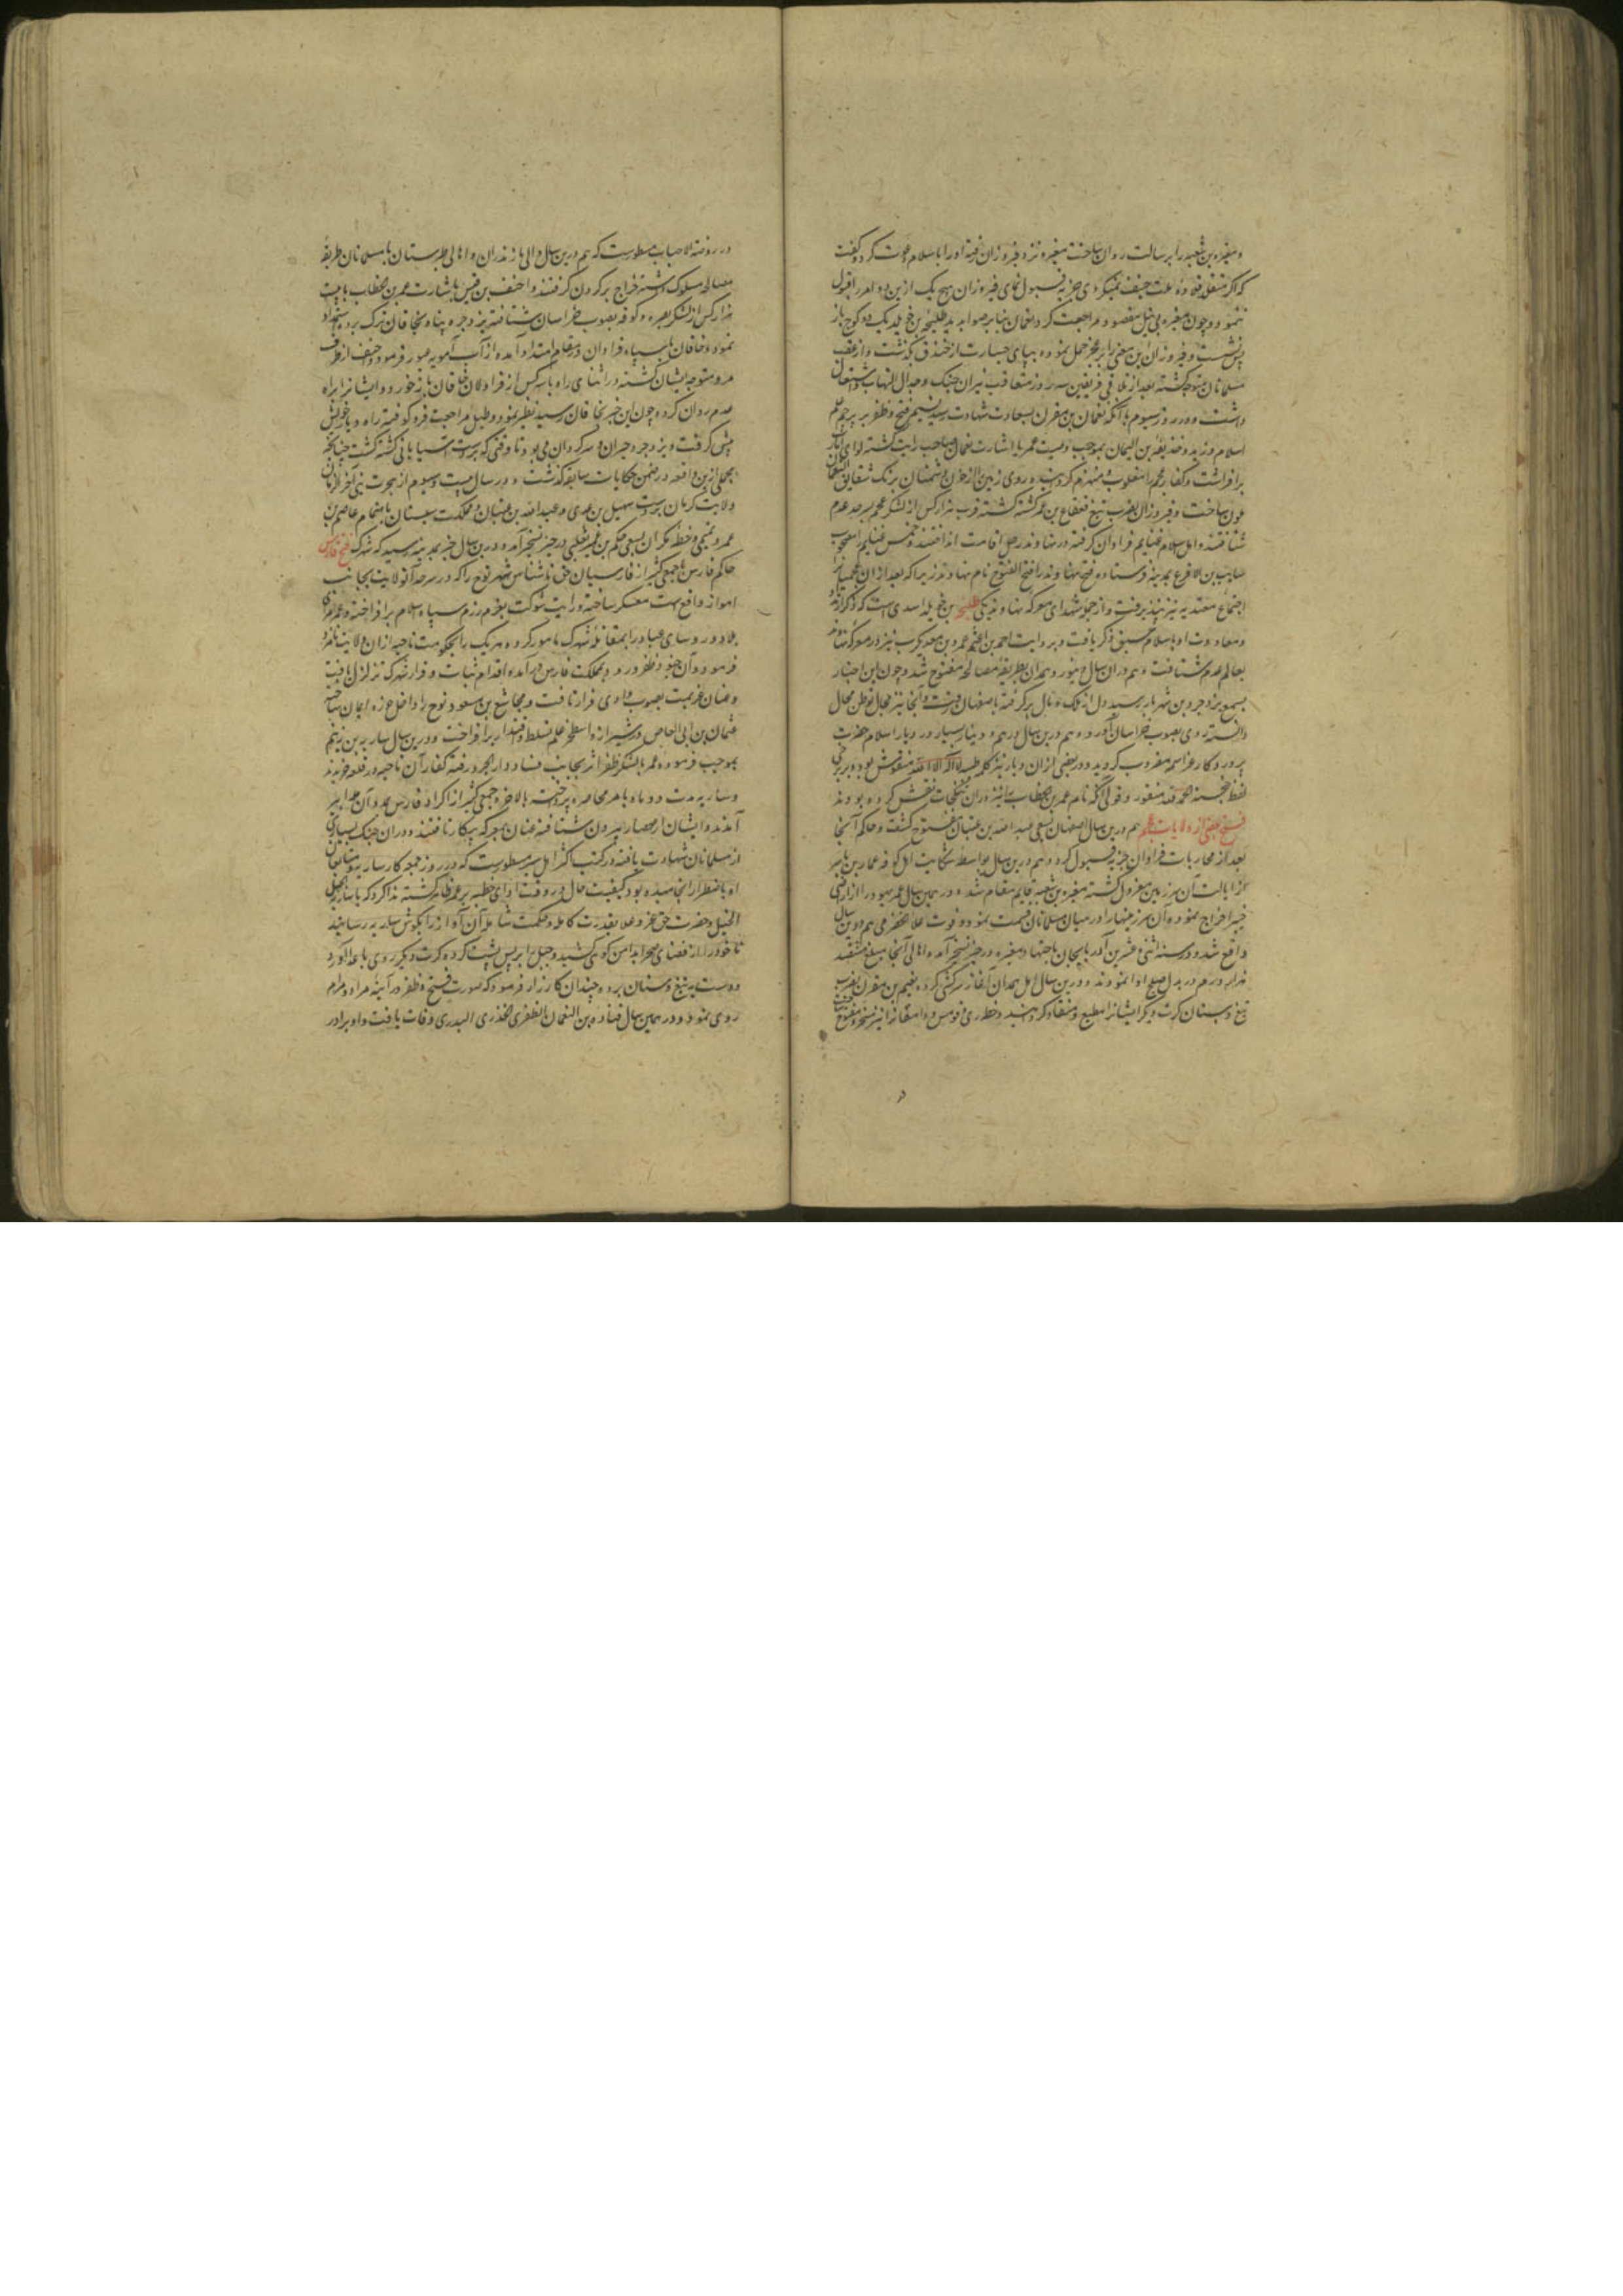 و مغیره بن شعبه را برسالت روان ساخت مغیره نزد فیروزان رفته او را باسلام دعوت کرد و گفت
که اگر متقلد قلاده ملت حنیف نمیگردی جزیه قبول نمای فیروزان هیچ یک ازین دو امر را قبول
ننمود و چون مغیره بی نیل مقصود مراجعت کرد نعمان بنابر صوابدید طلیحه بن خویلد یک دو کوچ باز
پس نشست و فیروزان این معنی را بر عجز حمل نموده بپای جسارت از خندق گذشت و از عقب
مسلمانان متوجه گشته بعد از تلاقی فریقین سه روز متعاقب نیران جنگ و جدال التهاب و اشتعال
داشت و در روز سیوم با آنکه نعمان بن مقرن بسعادت شهادت رسید نسیم فتح و ظفر بر پرچم علم
اسلام وزید و حذیفه بن الیمان بموجب وصیت عمر یا اشارت نعمان صاحب رایت گشته لوای
برافراشت و کفار عجم را مغلوب و منهزم گردانیده روی زمین را از خون دشمنان برنگ شقایق النعمان
گون ساخت و فیروزان بضرب تیغ قعقاع بن عمر کشته گشته قرب هزار کس از لشکر عجم بسرحد عدم
شتافتند و اهل اسلام غنایم فراوان گرفته در نهاوند رحل اقامت انداختند و خمس غنایم مصحوب
سایب بن الاقرع بمدینه فرستاده فتح نهاوند را فتح الفتوح نام نهادند زیرا که بعد از آن عجمیان را
اجتماع معتدبه نیز نپذیرفت و از جمله شهدای معرکه نهاوند یکی طلیحه بن خویلد اسدی است که ذکر ارتداد
و معاودت او باسلام سبق ذکر یافت و بروایت احمد بن اعثم عمرو بن معدیکرب نیز در معرکه نهاوند
بعالم عدم شتافت و هم در آن سال دینور و همدان بطریق مصالحه مفتوح شد و چون این اخبار
بسمع یزدجرد بن شهریار رسید دل از ملک و مال برگرفته باصفهان رفت و آنجا نیز مجال توطن محال
دانسته روی بصوب خراسان آورد و هم درین سال درهم و دینار بسیار در دیار اسلام بضرب
پروردگار عز اسمه مضروب گردید و در بعضی از آن دینار نیز کلمه طیبه لا اله الا الله منقوش بود و بر برخی
لفظ خجسته الحمد لله مسطور و قولی آنکه نام عمر بن الخطاب نیز در آن سکجات نقش کرده بودند
فتح بعضی از ولایات عجم هم درین سال اصفهان بسعی عبد الله بن عتبان مفتوح گشت و حاکم آنجا
بعد از محاربات فراوان جزیه قبول کرد و هم درین سال بواسطه شکایت اهل کوفه عمار بن یاسر
از ایالت آن سرزمین معزول گشته مغیره بن شعبه قایم مقام شد و در همین سال عمر یهود را از اراضی
خیبر اخراج نموده آن سرزمینها را در میان مسلمانان قسمت نمود و فوت علا حضرمی هم درین سال
واقع شد و در سنه اثنی و عشرین آذربایجان باجتهاد مغیره در حیز تسخیر آمد و اهالی آنجا مبلغ هشتصد
هزار درم در بدل صلح ادا نمودند و درین سال اهل همدان آغاز سرکشی کرده نعیم بن مقرن بضرب
تیغ و سنان کرت دیگر ایشانرا مطیع و منقاد گردانید و خطه ری و قومس و دامغان را نیز مسخر و مفتوح ساخت
در
در روضة الاحباب مسطورست که هم درین سال والی مازندران و اهالی طبرستان با مسلمانان طریقه
مصالحه مسلوک داشته خراج بر گردن گرفتند و احنف بن قیس باشارت عمر بن خطاب با بیست
هزار کس از لشکر بصره و کوفه بصوب خراسان شتافته یزدجرد پناه بخاقان ترک برده استمداد
نمود و خاقان با سپاه فراوان در مقام امداد آمده از آب آمویه عبور فرمود و احنف از طرف
مرو متوجه ایشان گشته در اثنای راه با سه کس از قراولان خاقان باز خورد و ایشانرا براه
عدم روان کرد و چون این خبر بخاقان رسید تطیر نمود و طبل مراجعت فرو کوفته راه دیار خویش
پیش گرفت و یزدجرد حیران و سرگردان می بود تا وقتی که بدست آسیابانی کشته گشت چنانکه
مجملی ازین واقعه در ضمن حکایات سابقه گذشت و در سال بیست و سیوم از هجرت نبی آخر الزمان
ولایت کرمان بدست سهیل بن عدی و عبد الله بن عتبان و مملکت سیستان باهتمام عاصم بن
عمرو تمیمی و خطه مکران بسعی حکم بن عمیر تغلبی در حیز تسخیر آمد و درین سال خبر بمدینه رسید که شهرک فتح فارس
حاکم فارس با جمعی کثیر از فارسیان حق ناشناس شهر توج را که در سرحد آن ولایت بجانب
اهواز واقع است معسکر ساخته و رایت شوکت بعزم رزم سپاه اسلام برافراخته و عمر
بلاد و روسای عباد را بمقابله شهرک مامور کرده هر یک را بحکومت ناحیه از آن ولایت نامزد
فرمود و آن جنود ظفر ورود بمملکت فارس درآمده اقدام ثبات و قرار شهرک تزلزل یافت
و عنان عزیمت بصوب وادی فرار تافت و مجاشع بن مسعود توج را داخل حوزه ایمان ساخت
عثمان بن ابی العاص در شیراز و اصطخر علم تسلط و اقتدار برافراخت و درین سال ساریه بن زنیم
بموجب فرموده عمر با لشکر ظفر اثر بجانب فسا و دارابجرد رفته کفار آن ناحیه در قلعه خزیدند
و ساریه مدت دو ماه بامر محاصره پرداخته بالاخره جمعی کثیر از اکراد فارس بمدد آن مدابیر
آمدند و ایشان از حصار بیرون شتافته عنان بمعرکه پیکار تافتند و در آن جنگ بسیاری
از مسلمانان شهادت یافته در کتب اکثر اهل سیر مسطورست که در روز جمعه که کار ساریه و متابعان
او باضطرار انجامیده بود کیفیت حال در وقت ادای خطبه بر عمر ظاهر گشته ندا کرد که یا ساریه الجبل
الجبل و حضرت حق عز و علا بقدرت کامله و حکمت شامله آن آواز را بگوش ساریه رسانید
تا خود را از فضای صحرا بدامن کوهی کشید و جبل را پس پشت کرده کرت دیگر روی باعدا آورد
و دست به تیغ و سنان برده چندان کارزار فرمود که صورت فتح و ظفر در آینه مراد و مرام
روی نمود و در همین سال قتاده بن النعمان الظفری الخدری البدری وفات یافت و او برادر